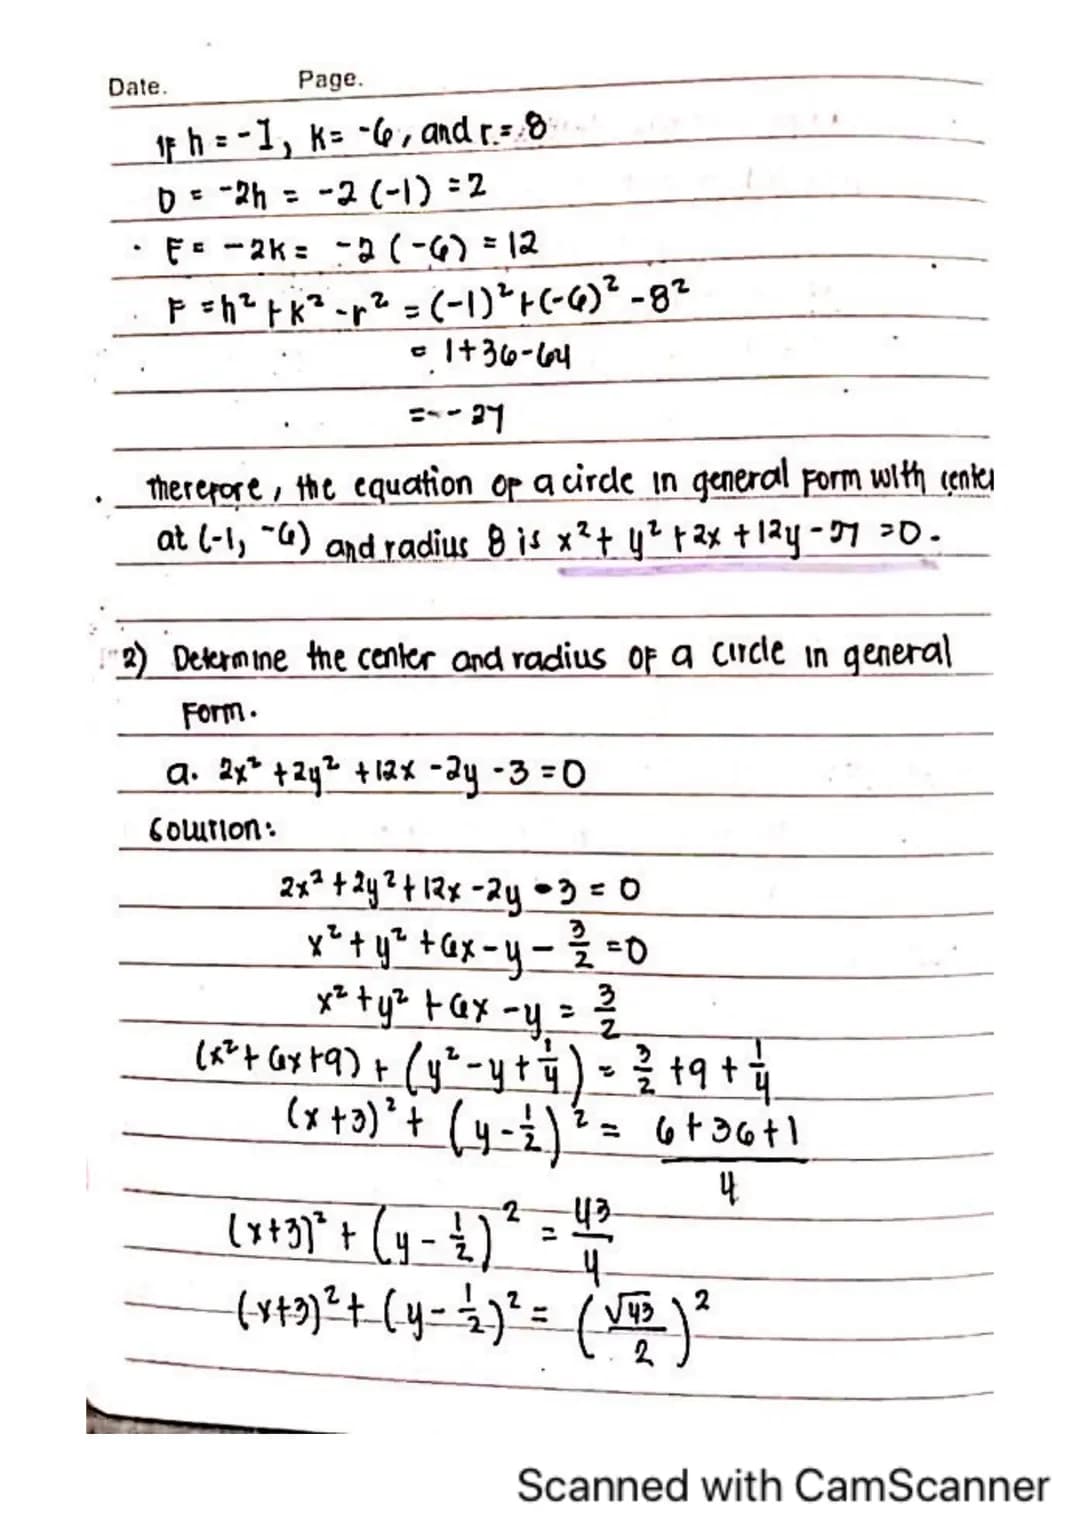 Date. Page.
If h = -1, k = -6, and r = 8
D = -2h = -2 (-1) = 2
E = -2k = -2 (-6) = 12
F = h² + k² - r² = (-1)² + (-6)² - 8²
= 1+36-64
= -27
Therefore, the equation of a circle in general form with center
at (-1, -6) and radius 8 is x² + y² + 2x + 12y - 27 = 0.
2) Determine the center and radius of a circle in general
Form.
a. 2x² + 2y² + 12x - 2y - 3 = 0
Solution:
2x² + 2y² + 12x - 2y - 3 = 0
x² + y² + 6x - y - 3/2 = 0
x² + y² + 6x - y = 3/2
(x² + 6x + 9) + (y² - y + 1/4) = 3/2 + 9 + 1/4
(x + 3)² + (y - 1/2)² = 6+36+1/4
(x+3)² + (y - 1/2)² = 43/4
(x+3)² + (y - 1/2)² = (√43/2)²
Scanned with CamScanner